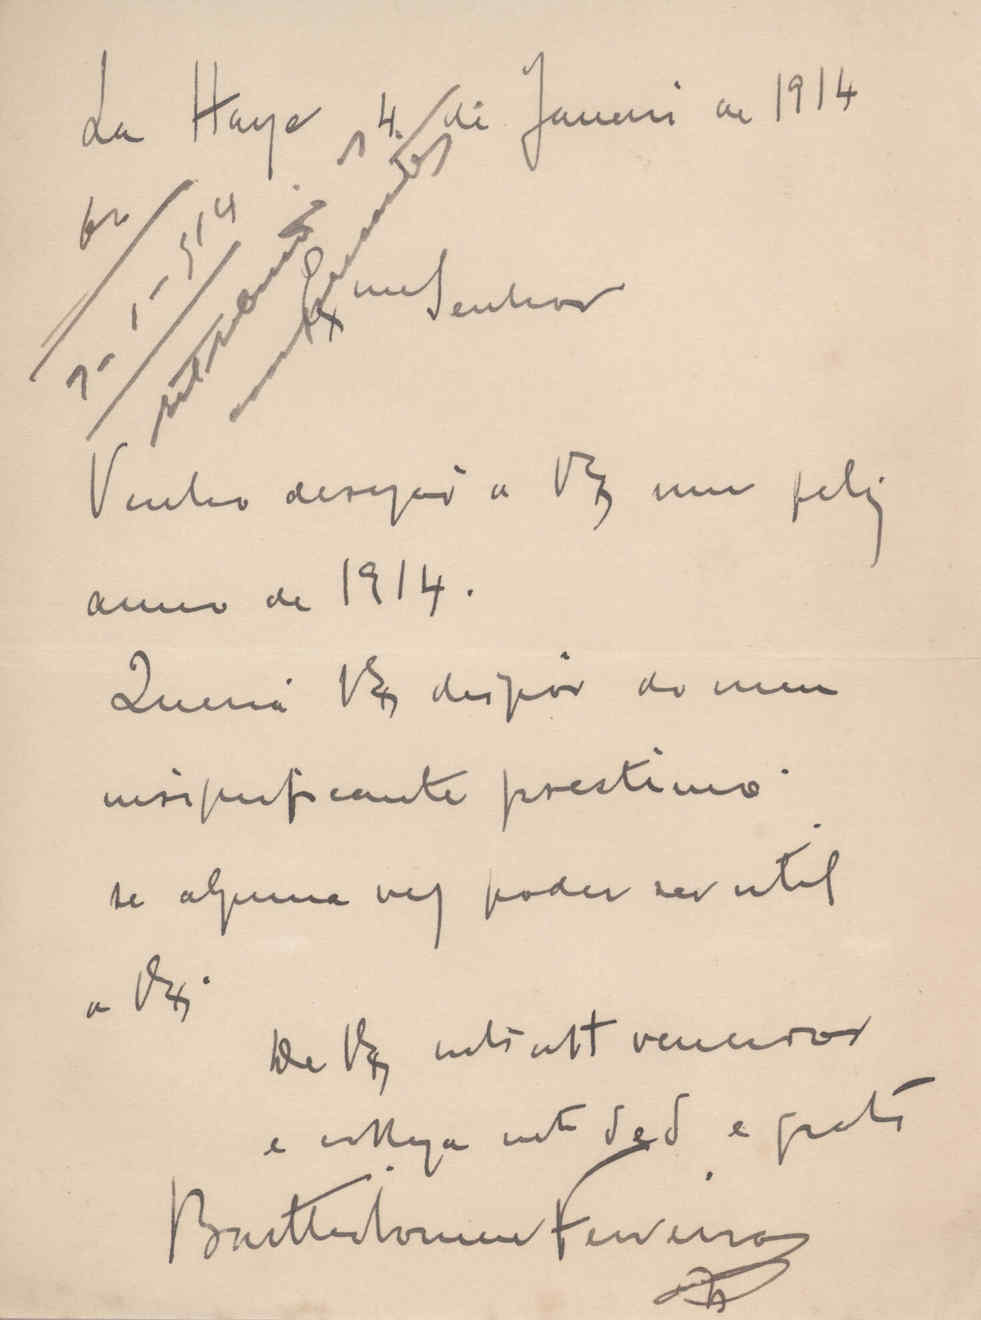 La Haye 4. de Janeiro de 1914
7-1-914
Exmo Senhor
Venho desejar a V Ex um feliz
anno de 1914.
Queira V Ex dispôr do meu
insignificante prestimo
se alguma vez poder ser util
a V Ex.
De V Ex mto attº venerador
e collega mto ded e grato
Bartholomeu Ferreira